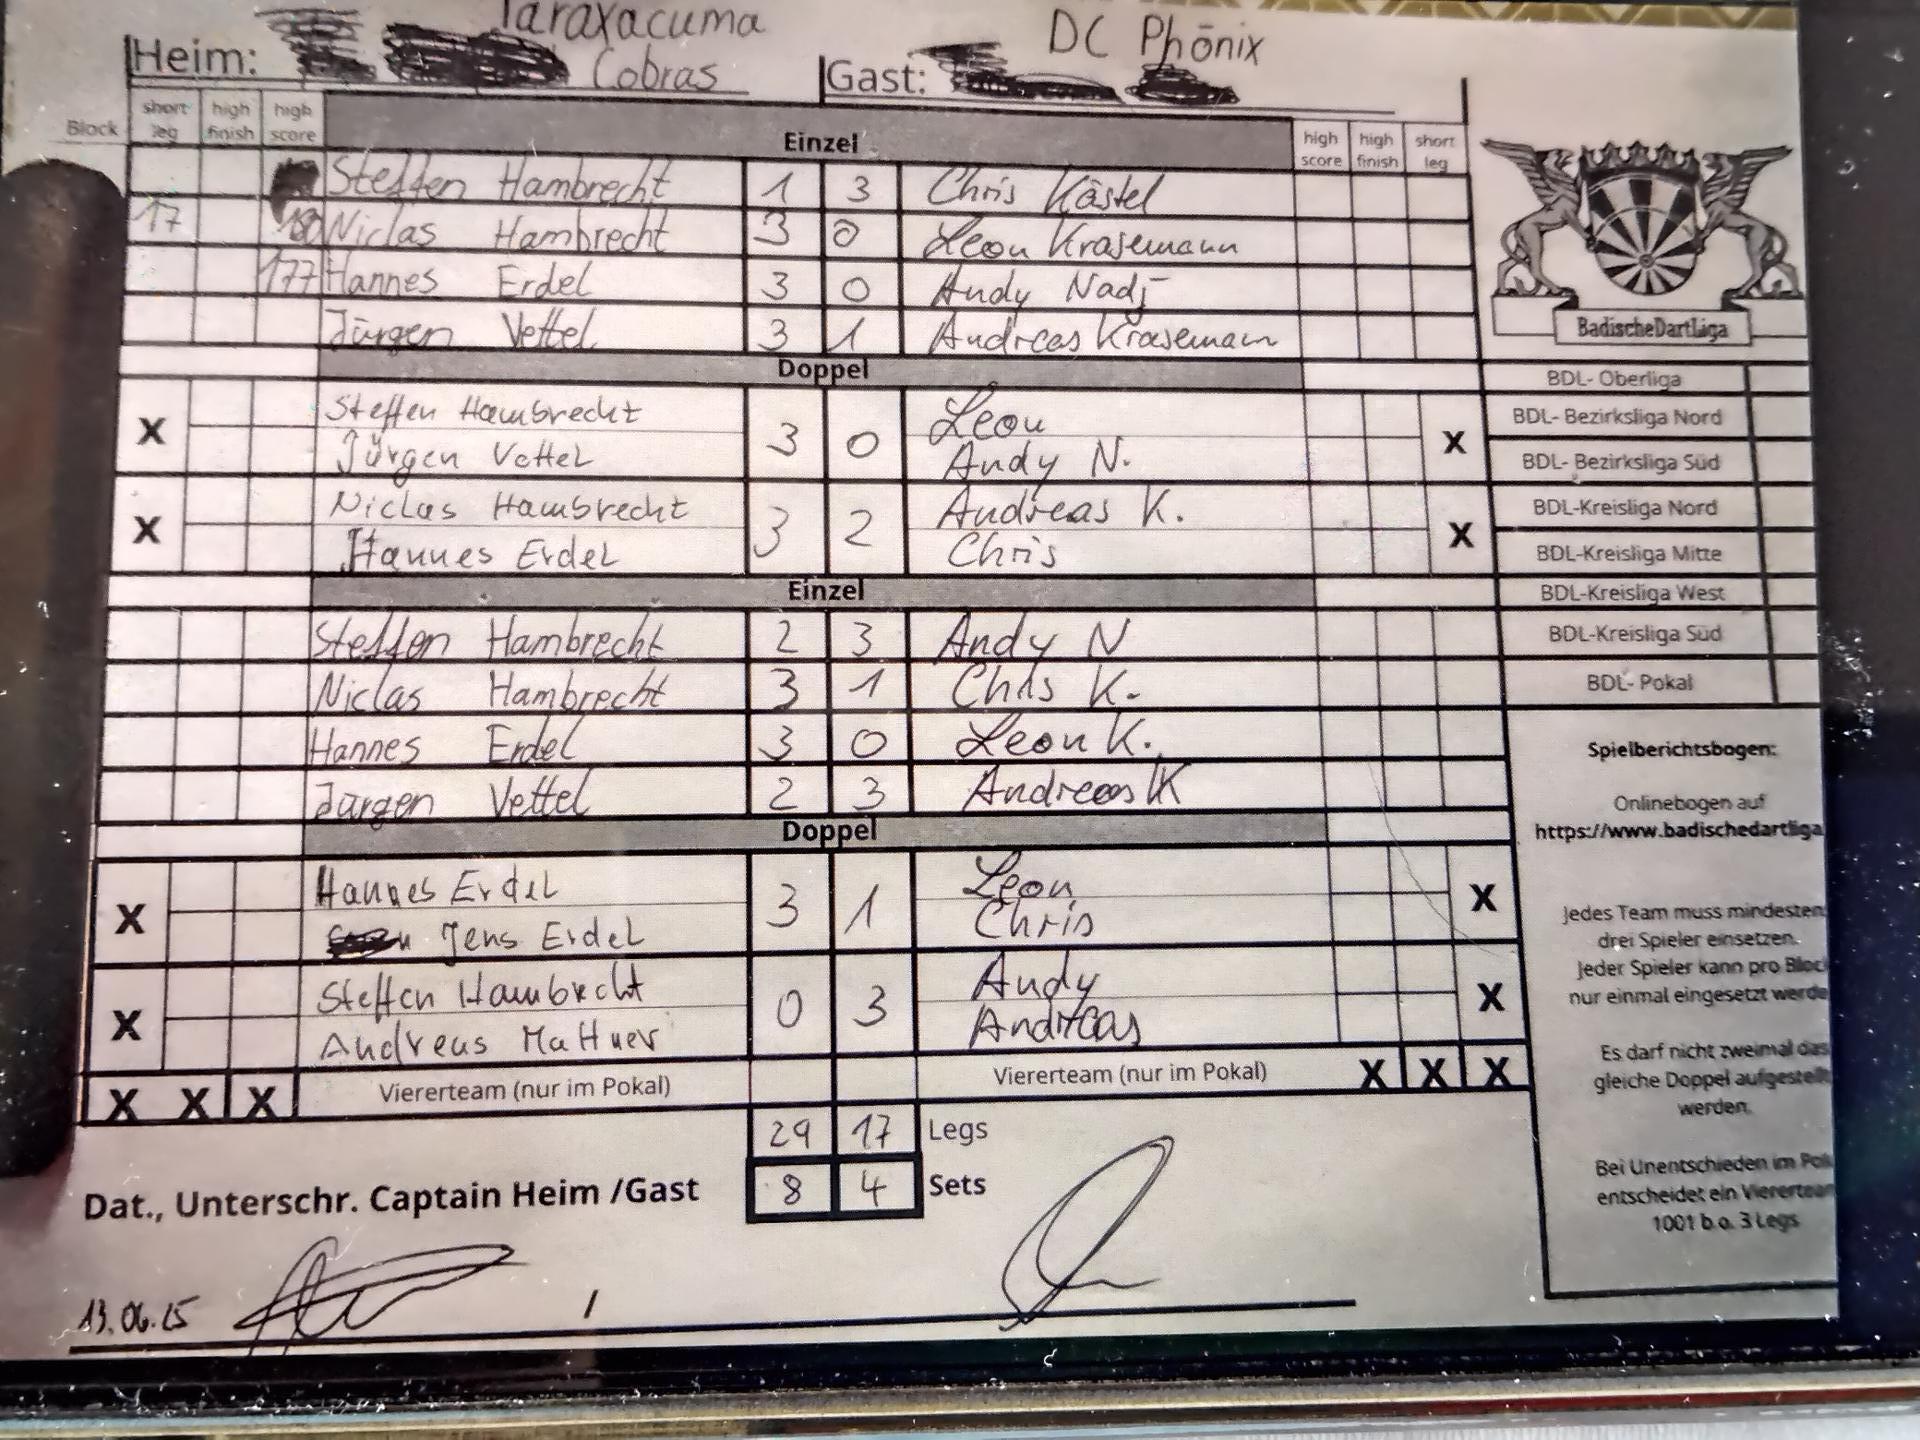 Taraxacuma
Heim: Cobras
Gast: DC Phönix
Block short leg high finish high score Einzel high score high finish short leg
Steffen Hambrecht 1 3 Chris Kästel
17 180 Niclas Hambrecht 3 0 Leon Krasemann
177 Hannes Erdel 3 0 Andy Nadj
Jürgen Vettel 3 1 Andreas Krasemann
Doppel
X Steffen Hambrecht 3 0 Leon X
Jürgen Vettel Andy N.
X Niclas Hambrecht 3 2 Andreas K. X
Hannes Erdel Chris
Einzel
Steffen Hambrecht 2 3 Andy N
Niclas Hambrecht 3 1 Chris K.
Hannes Erdel 3 0 Leon K.
Jürgen Vettel 2 3 Andreas K
Doppel
X Hannes Erdel 3 1 Leon X
Jens Erdel Chris
X Steffen Hambrecht 0 3 Andy X
Andreas Andreas
X X X Viererteam (nur im Pokal) Viererteam (nur im Pokal) X X X
29 17 Legs
Dat., Unterschr. Captain Heim /Gast 8 4 Sets
13.06.25 /
BadischeDartLiga
BDL- Oberliga
BDL- Bezirksliga Nord
BDL- Bezirksliga Süd
BDL-Kreisliga Nord
BDL-Kreisliga Mitte
BDL-Kreisliga West
BDL-Kreisliga Süd
BDL- Pokal
Spielberichtsbogen:
Onlinebogen auf
https://www.badischedartliga
Jedes Team muss mindesten
drei Spieler einsetzen.
Jeder Spieler kann pro Bloc
nur einmal eingesetzt werde
Es darf nicht zweimal das
gleiche Doppel aufgestell
werden.
Bei Unentschieden im Pok
entscheidet ein Viererteam
1001 b.o. 3 Legs